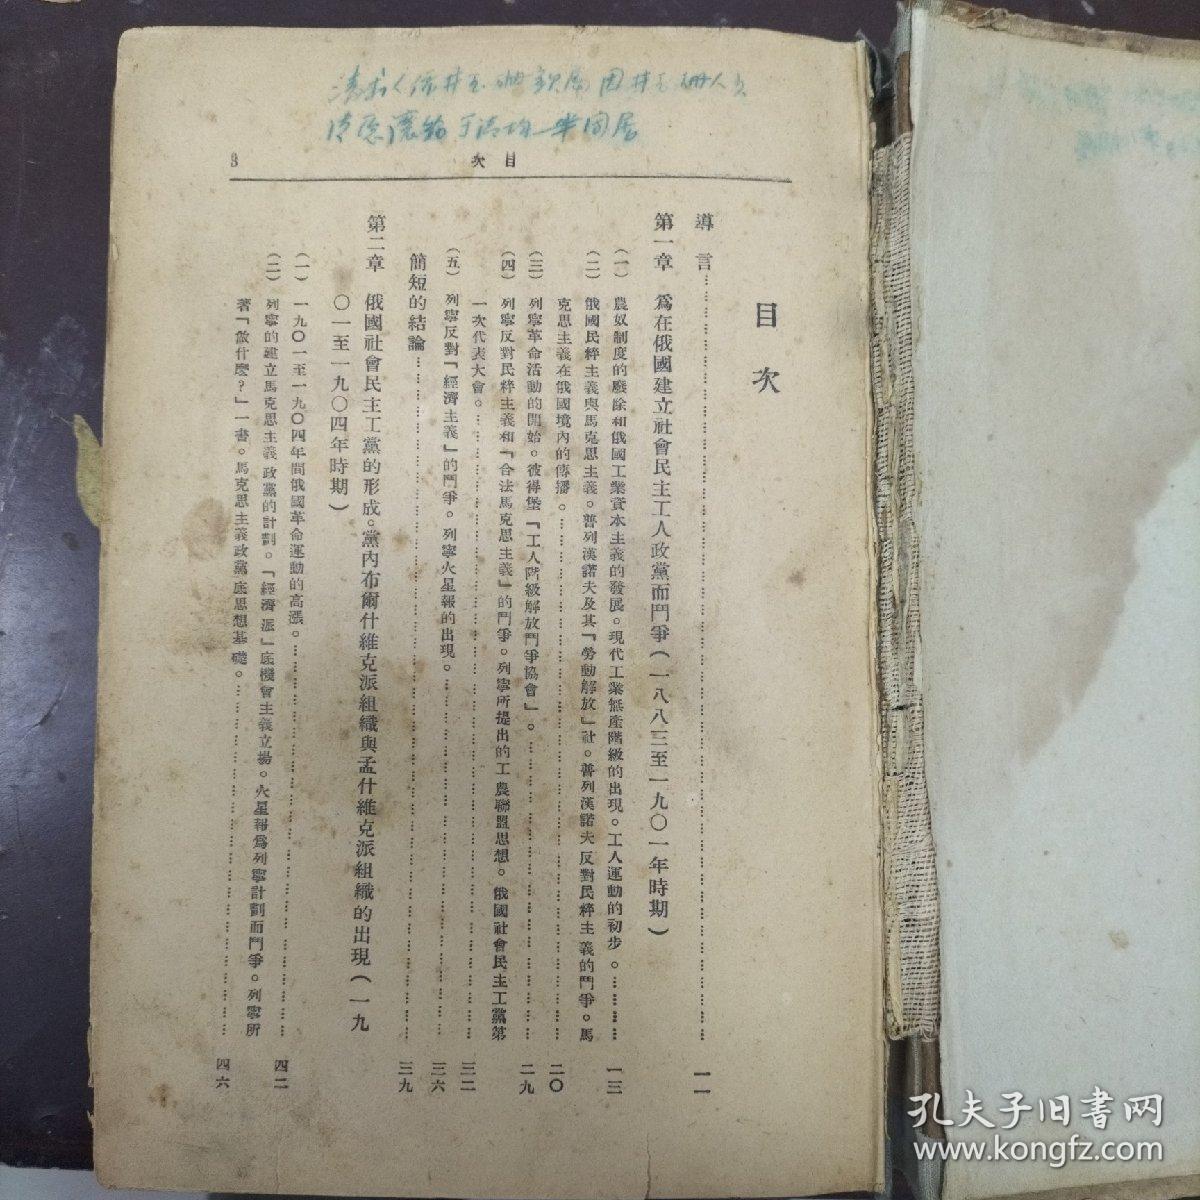 目次
3
目次
導言………11
第一章 爲在俄國建立社會民主工人政黨而鬥爭(一八八三至一九〇一年時期)
(一) 農奴制度的廢除和俄國工業資本主義的發展。現代工業無產階級的出現。工人運動的初步。………一三
(二) 俄國民粹主義與馬克思主義。普列漢諾夫及其「勞動解放」社。普列漢諾夫反對民粹主義的鬥爭。馬
克思主義在俄國境內的傳播。………二〇
(三) 列寧革命活動的開始。彼得堡「工人階級解放鬥爭協會」。………二九
(四) 列寧反對民粹主義和「合法馬克思主義」的鬥爭。列寧所提出的工農聯盟思想。俄國社會民主工黨第
一次代表大會。………三二
(五) 列寧反對「經濟主義」的鬥爭。列寧火星報的出現。………三六
簡短的結論………三九
第二章 俄國社會民主工黨的形成。黨內布爾什維克派組織與孟什維克派組織的出現(一九
〇一至一九〇四年時期)
(一) 一九〇一至一九〇四年間俄國革命運動的高漲。………四二
(二) 列寧的建立馬克思主義政黨的計劃。「經濟派」底機會主義立場。火星報爲列寧計劃而鬥爭。列寧所
著「做什麼?」一書。馬克思主義政黨底思想基礎。………四六
孔夫子旧书网
www.kongfz.com